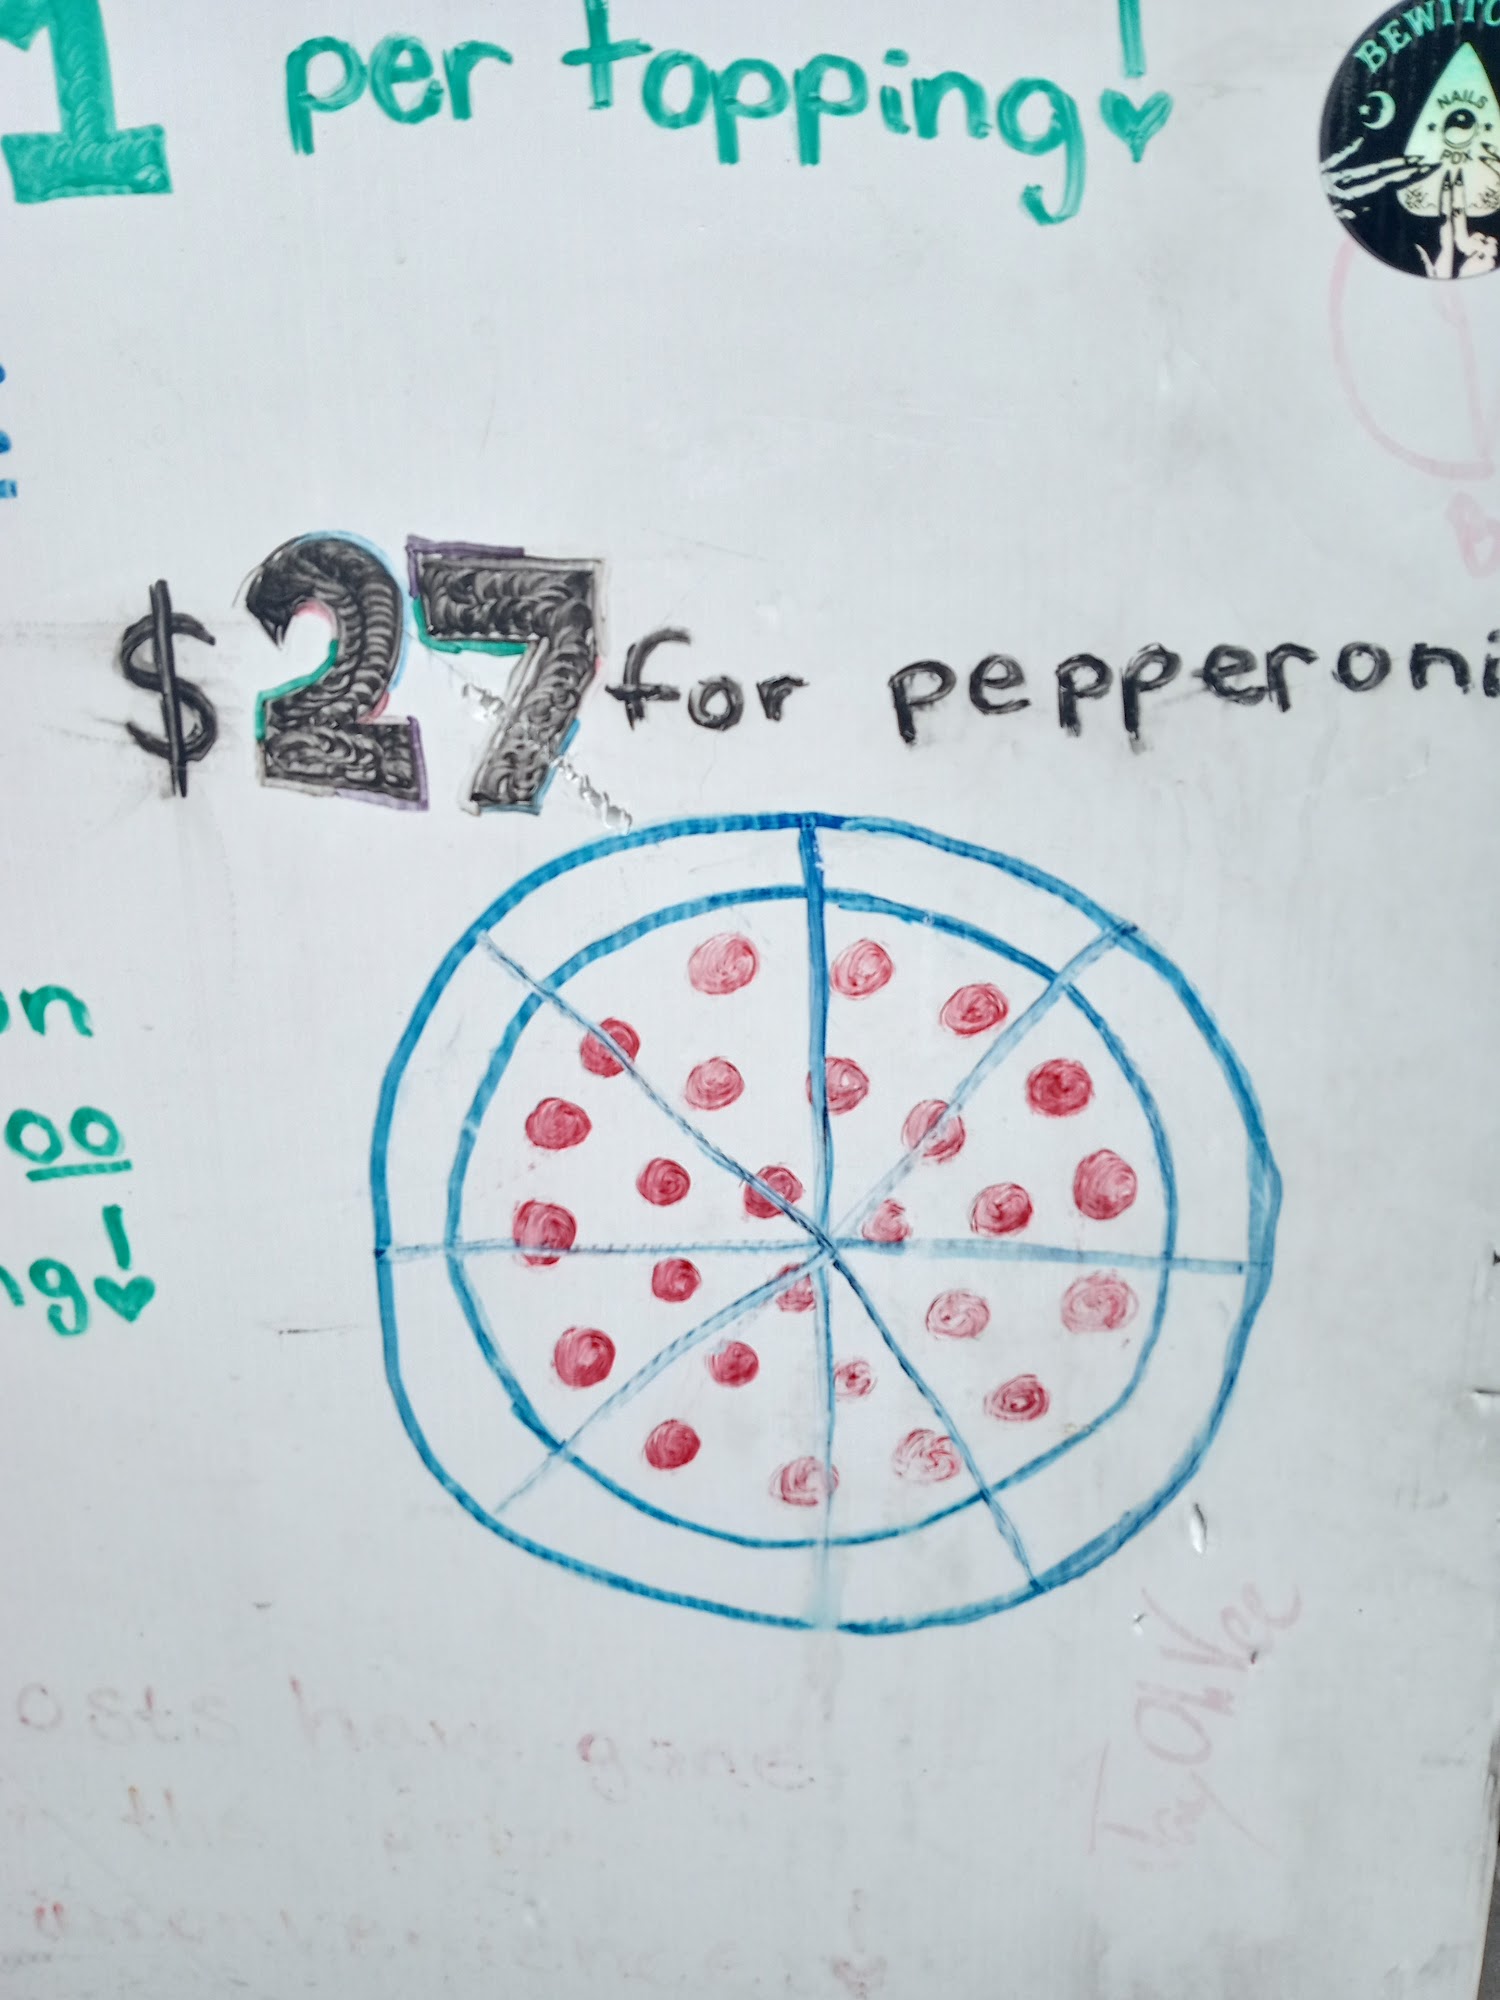 1 per topping!
BEWITC
NAILS
PDX
$27 for pepperoni
on
00
ng!
osts have gone
Jay Oliver